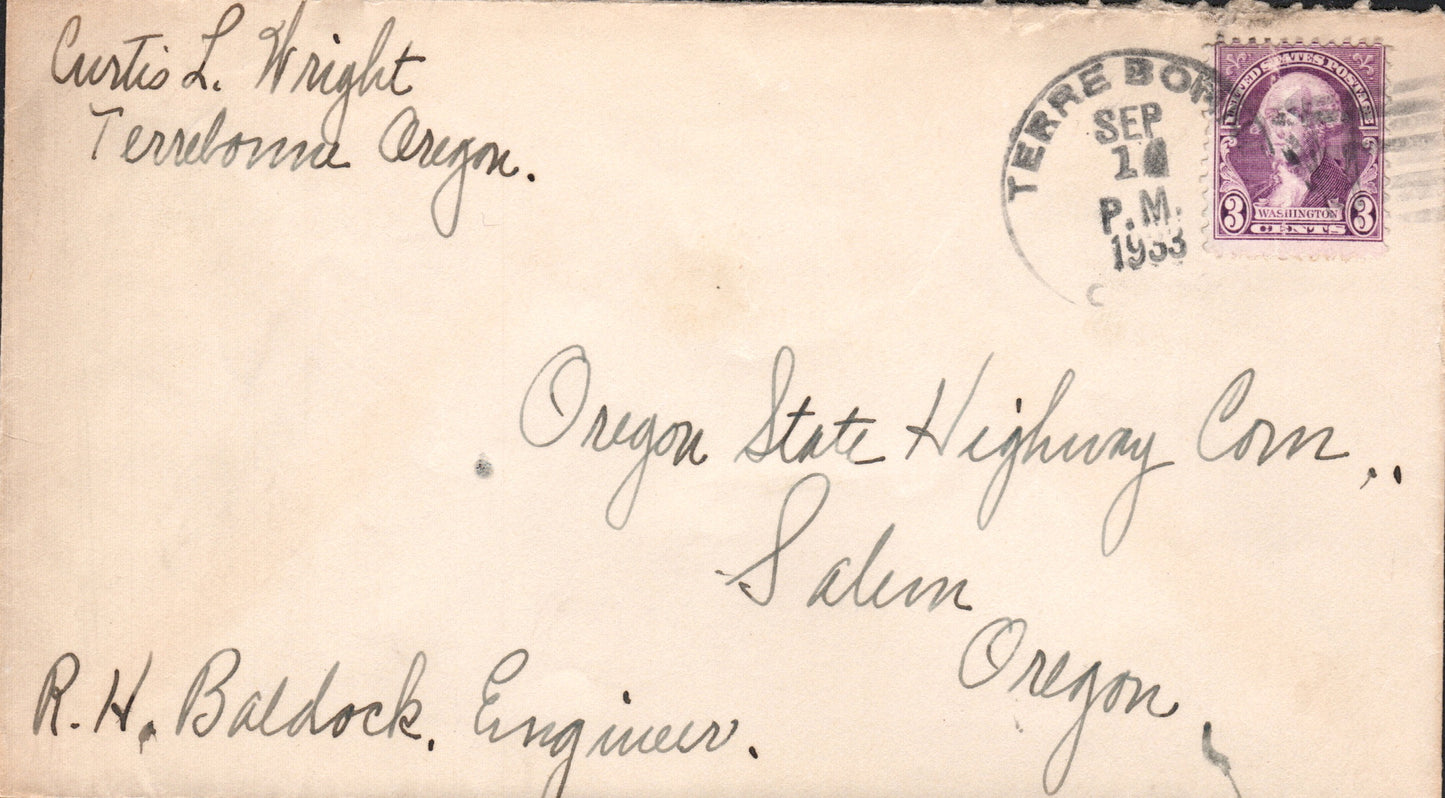 Curtis L. Wright
Terrebonne Oregon.
TERREBOR
SEP
P.M.
1933
UNITED STATES POSTAGE
3 WASHINGTON 3
CENTS
Oregon State Highway Com..
Salem
Oregon
R. H. Baldock, Engineer.